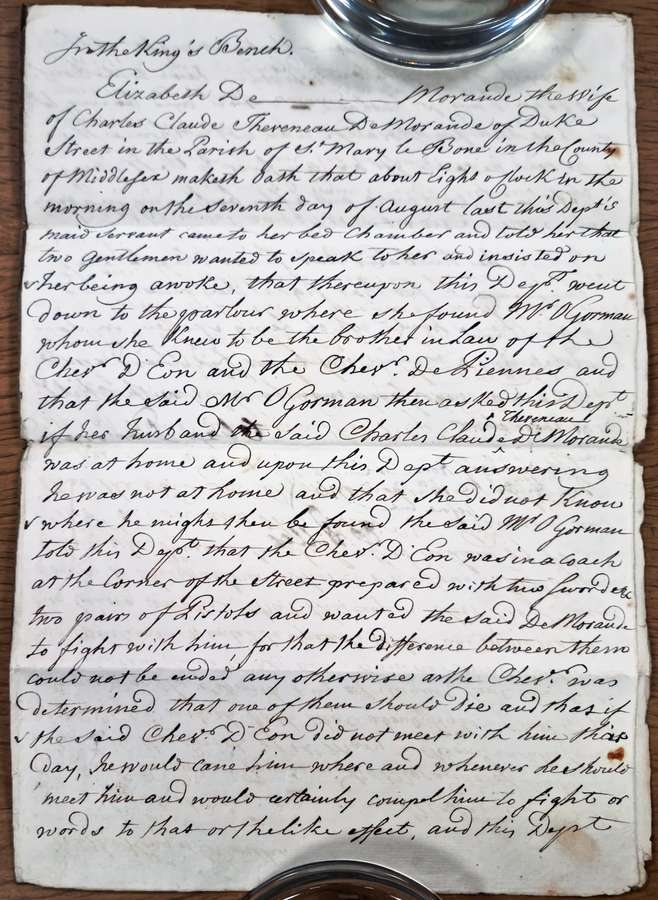 In the King's Bench.
Elizabeth De ———— Morande the Wife
of Charles Claude Thereneau De Morande of Duke
Street in the Parish of St. Mary le Bone in the County
of Middlesex maketh Oath that about Eight o'Clock in the
morning on the seventh day of August last this Depts.
maid servant came to her bed Chamber and told her that
two Gentlemen wanted to speak to her and insisted on
her being awoke, that thereupon this Dept. went
down to the parlour where she found Mr. O Gorman
whom she knew to be the brother in Law of the
Chevr. D'Eon and the Chevr. De Piennes and
that the said Mr. O Gorman then asked this Dept.
if her husband the said Charles Claude Thereneau De Morande
was at home and upon this Dept. answering
he was not at home and that she did not know
where he might then be found the said Mr. O Gorman
told this Dept. that the Chevr. D'Eon was in a coach
at the Corner of the street prepared with two swords &
two pairs of Pistols and wanted the said De Morande
to fight with him for that the difference between them
could not be ended any otherwise as the Chevr. was
determined that one of them should die and that if
the said Chevr. D'Eon did not meet with him that
day, he would cane him where and whenever he should
meet him and would certainly compel him to fight or
words to that or the like effect, and this Dept